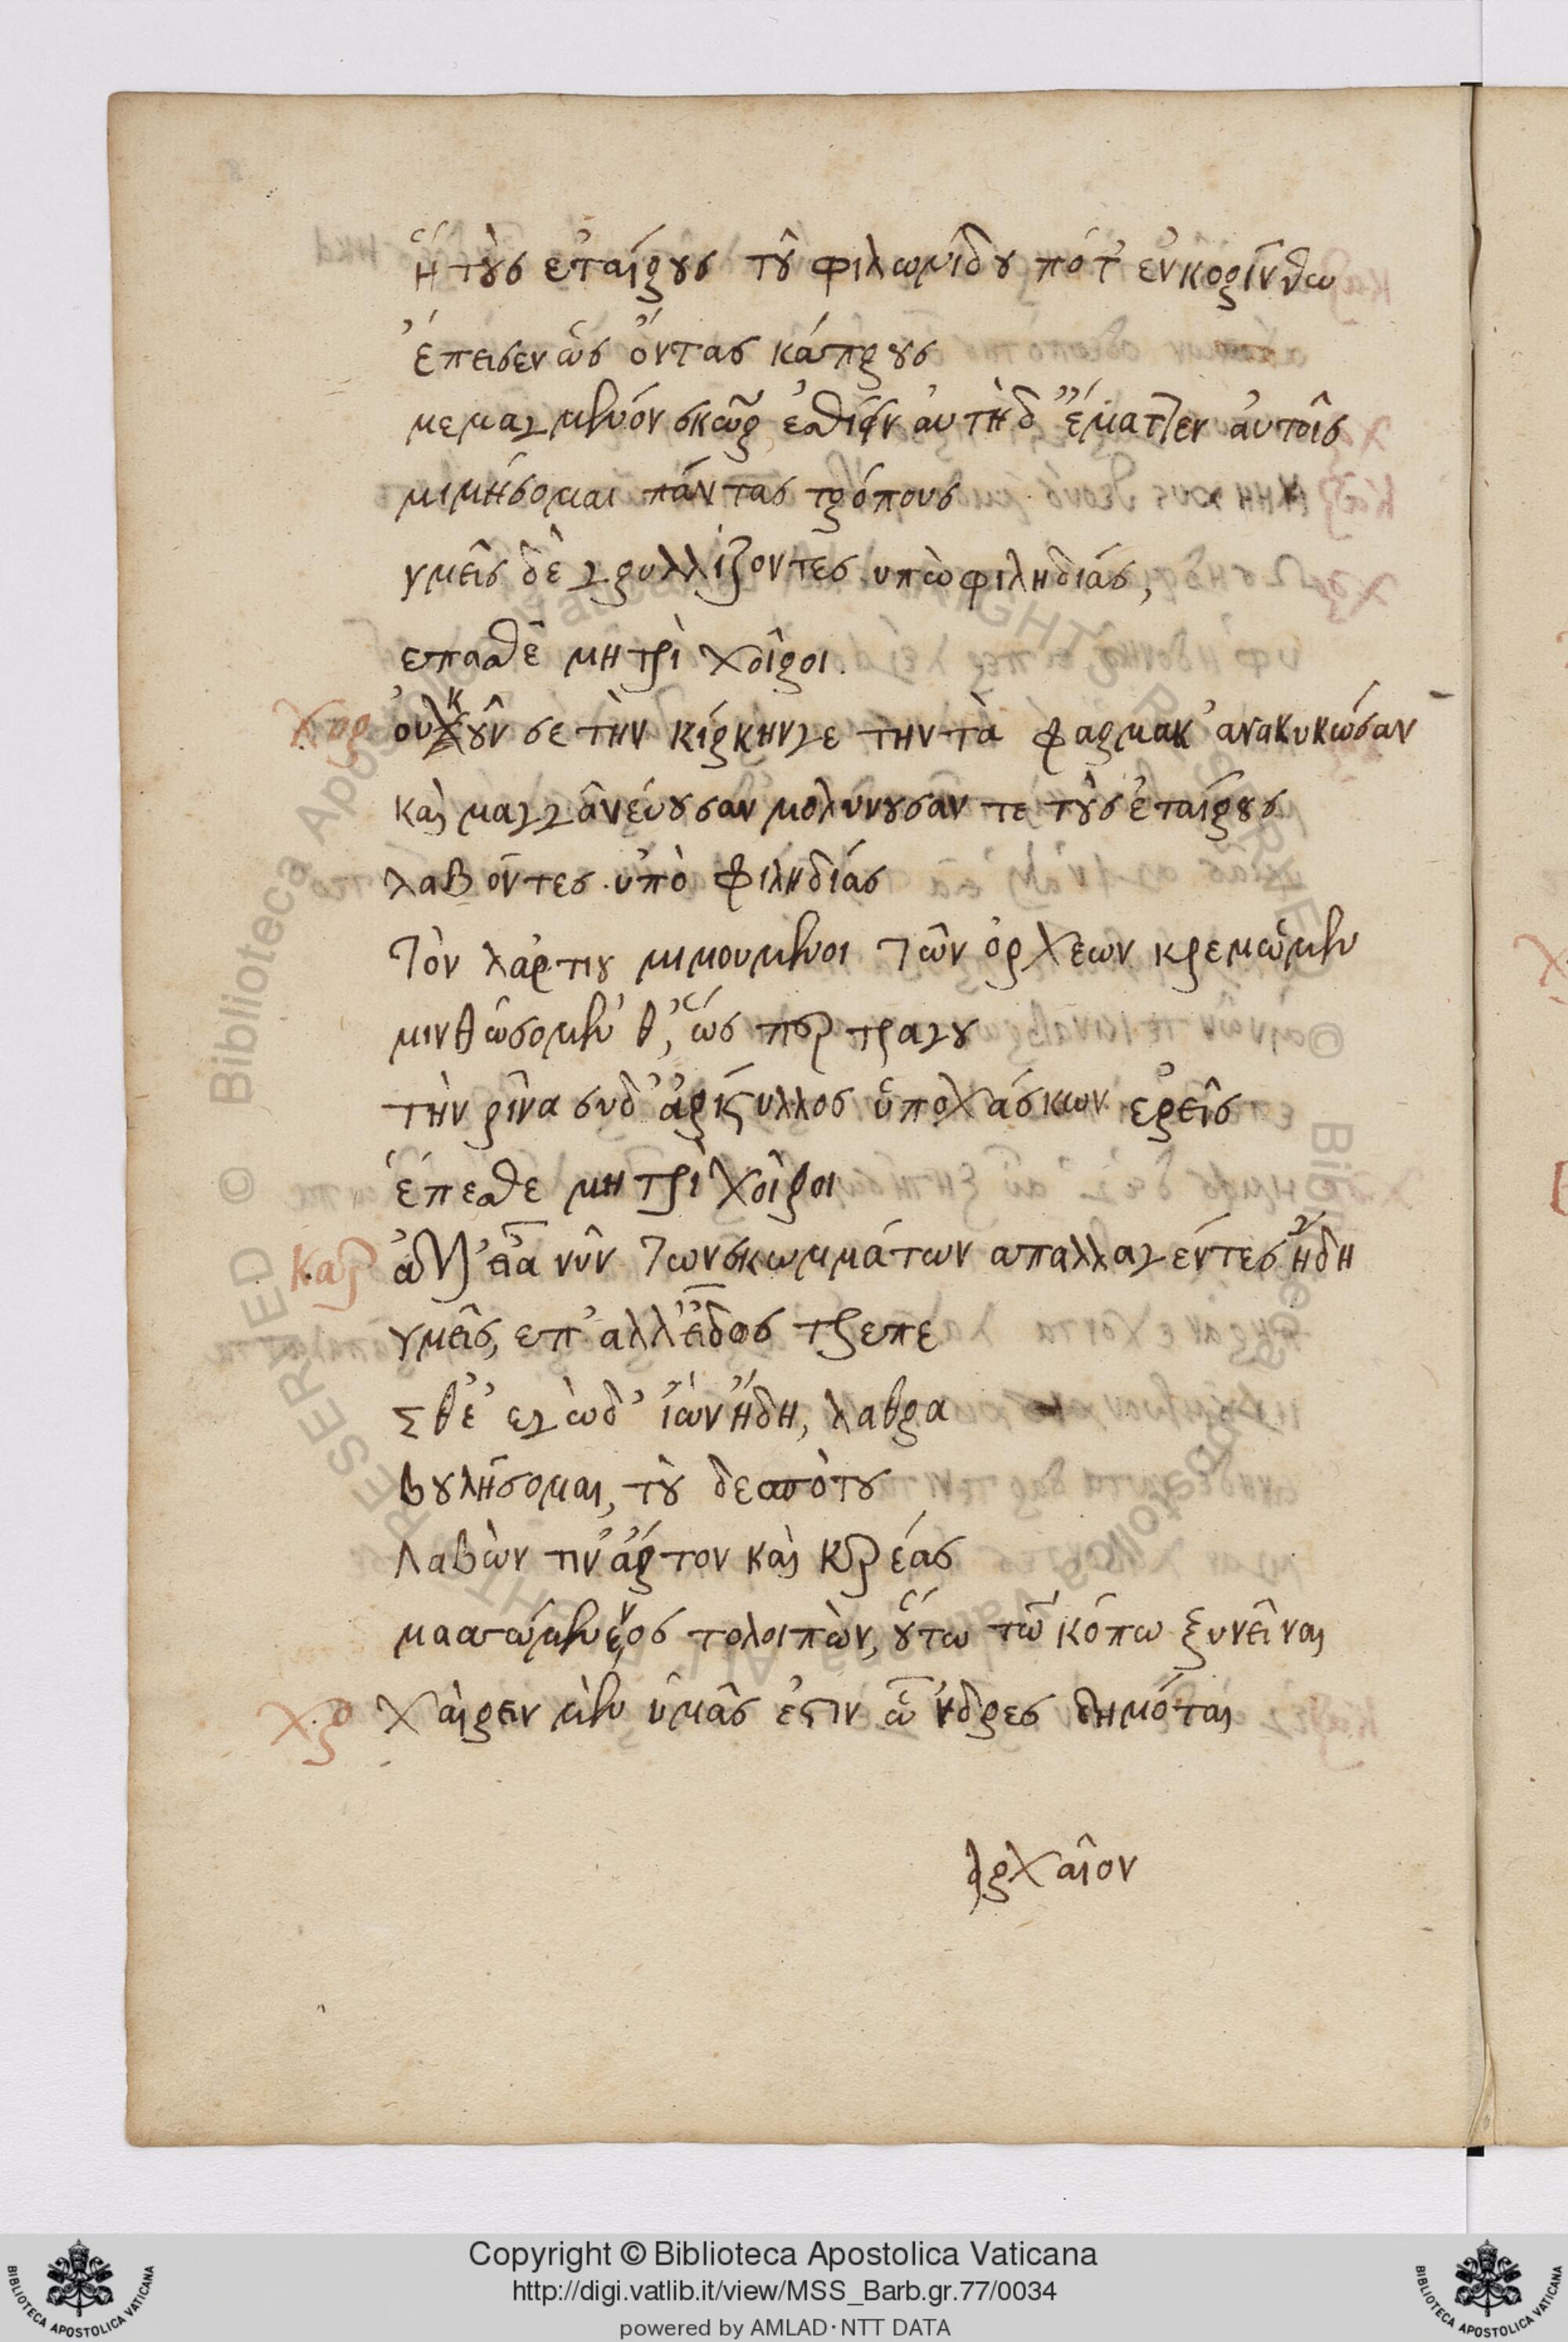 ἣ τοὺς ἑταίρους τοῦ φιλωνίδου πότ' ἐν κορίνθω
ἔπεισεν ὡς ὄντας κάπρους
μεμαγμένον σκῶρ ἐσθίειν ἀυτὴ δ' ἔματτεν ἀυτοῖς
μιμήσομαι πάντας τρόπους
υμεῖς δὲ γρυλλίζοντες υπὼ φιληδιάς,
επεσθὲ μητρὶ χοῖροι.
χορ ὀυκοῦν σε τὴν κίρκην γε την τὰ φαρμακ' ανακυκώσαν
καὶ μαγγανέυουσαν μολύνουσάν τε τοὺς ἑταίρους
λαβόντες υπὸ φιληδιάς
Τὸν λάρτιου μιμουμενοι Τῶν ὀρχεων κρεμώμεν
μινθώσομέν θ', ὥσπερ τραγου
τὴν ρῖνα συ δ' ἀρίστυλλος ὑποχάσκων ερεῖς
ἕπεσθε μητρὶ χοῖροι
Καρ ἀλλ' εἶα νῦν Των σκωμμάτων απαλλαγέντες ἤδη
υμεῖς, επ' αλλ' εἶδος τρεπε
σθέ εγὼ δ' ἰὼν ἤδη, λαθρα
βουλήσομαι, τοὺ δεσπότου
λαβών τιν' ἄρτον καὶ κρέας
μασώμενος τολοιπὼν, ὅυτω τῶ κόπω ξυνεῖναι
χορ Χάιρειν μὲν ὑμᾶς ἐστιν ὦ νδρες δημόται
ἀρχαῖον
Copyright © Biblioteca Apostolica Vaticana
http://digi.vatlib.it/view/MSS_Barb.gr.77/0034
powered by AMLAD·NTT DATA